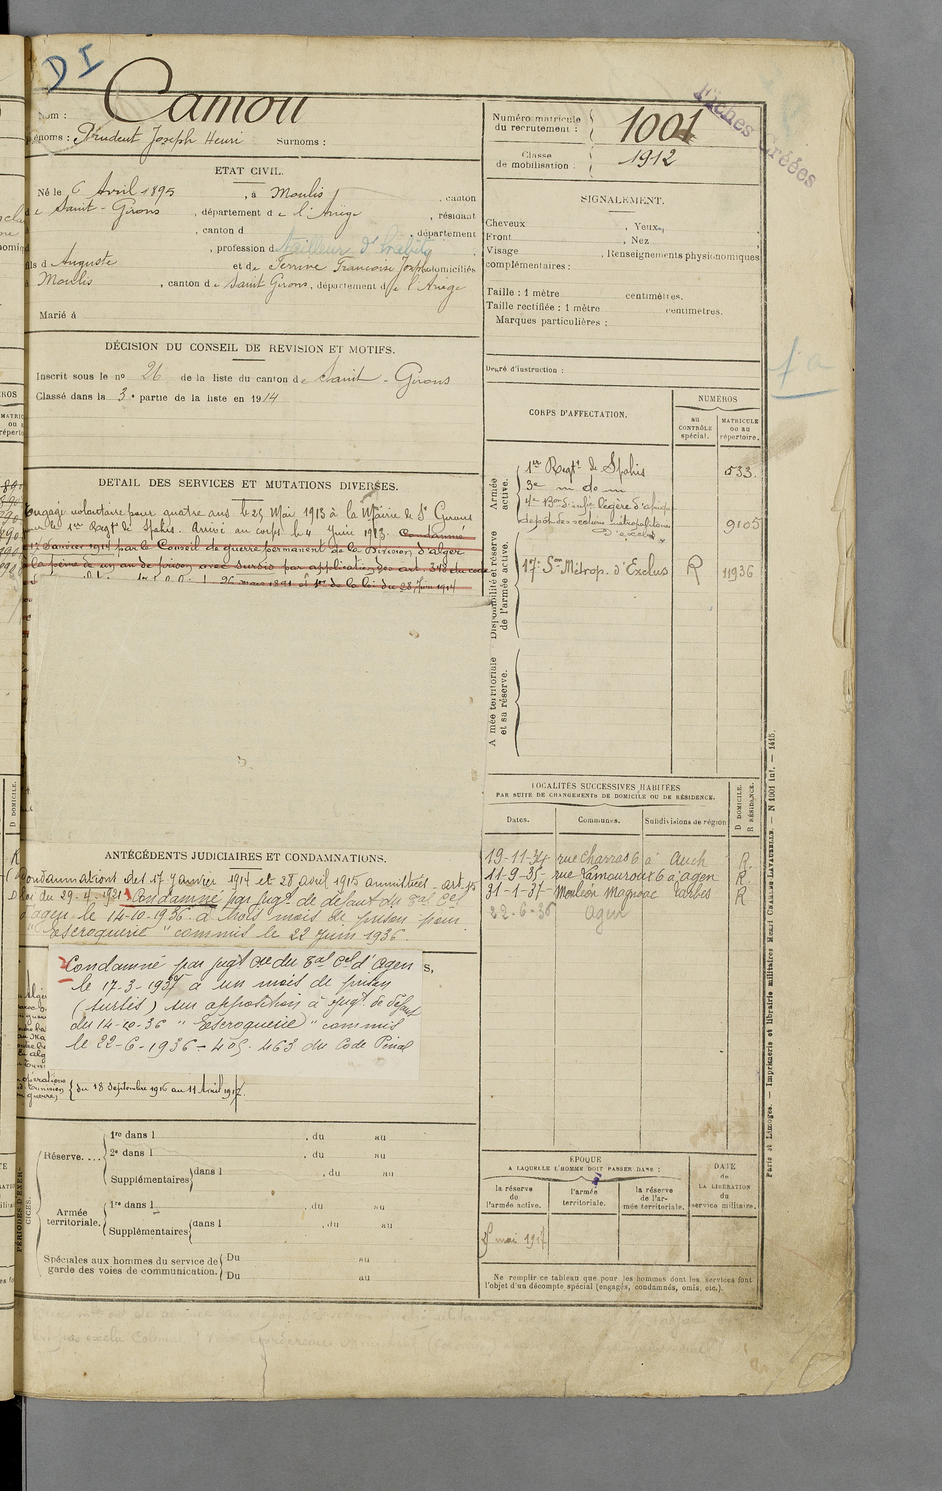 D I
Nom : Camou
Prénoms : Prudent Joseph Henri Surnoms :
Numéro matricule du recrutement : 1001
Classe de mobilisation : 1912
Fiches Créées
ETAT CIVIL.
Né le 6 Avril 1895, à Moulis, canton
de Saint-Girons, département de l'Ariège, résidant
, canton d , département
, profession d tailleur d'habits
fils d Auguste et de Françoise Josèphe domiciliés
à Moulis, canton de Saint Girons, département de l'Ariège
Marié à
DÉCISION DU CONSEIL DE REVISION ET MOTIFS.
Inscrit sous le no 26 de la liste du canton de Saint-Girons
Classé dans la 3e partie de la liste en 1914
DETAIL DES SERVICES ET MUTATIONS DIVERSES.
Engagé volontaire pour quatre ans le 29 Mai 1913 à la Mairie de St Girons
pour le 1er Regt de Spahis. Arrivé au corps le 4 Juin 1913. Condamné
le 17 Janvier 1914 par le Conseil de guerre permanent de la Division d'alger
à la peine de un an de prison avec sursis par application des art. 348 du code
26 mars 1891 et 1er de la loi du 28 Juin 1904
ANTÉCÉDENTS JUDICIAIRES ET CONDAMNATIONS.
Condamnations des 17 Janvier 1914 et 28 avril 1915 amnistiées - art. 15
loi du 29-4-1921 1 Condamné par Jugt de défaut du Bal Cel
d'agen le 14-10-1936 à trois mois de prison pour
" Escroquerie " commis le 22 Juin 1936.
2 Condamné par jugt du Bal Cel d'Agen
le 17-3-1937 à un mois de prison
(sursis) sur opposition à Jugt de défaut
du 14-10-36 " Escroquerie " commis
le 22-6-1936 - 405. 463 du Code Pénal
du 18 Septembre 1916 au 11 Avril 1917.
PÉRIODES D'EXERCICES.
Réserve.... 1re dans l , du au
2e dans l , du au
Supplémentaires dans l , du au
Armée territoriale. 1re dans l , du au
Supplémentaires dans l , du au
Spéciales aux hommes du service de garde des voies de communication. Du au
Du au
SIGNALEMENT.
Cheveux , Yeux ,
Front , Nez
Visage , Renseignements physionomiques
complémentaires :
Taille : 1 mètre centimètres.
Taille rectifiée : 1 mètre centimètres.
Marques particulières :
Degré d'instruction :
CORPS D'AFFECTATION.
NUMÉROS
au CONTRÔLE spécial.
MATRICULE ou au répertoire.
Armée active.
1er Regt de Spahis 533
3e — do —
4e Bon d'infie légère d'afrique
dépôt des sections métropolitaines d'exclus 9105
Disponibilité et réserve de l'armée active.
17e Son Métrop. d'Exclus R 11936
Armée territoriale et sa réserve.
LOCALITÉS SUCCESSIVES HABITÉES
PAR SUITE DE CHANGEMENTS DE DOMICILE OU DE RÉSIDENCE.
Dates. Communes. Subdivisions de région D DOMICILE. R RÉSIDENCE.
19-11-34 rue Charras 6 à Auch R
11-9-35 rue Lamouroux 6 à agen R
31-1-37 Moulion Magnoac Tarbes R
22-6-36 agen
ÉPOQUE
A LAQUELLE L'HOMME DOIT PASSER DANS :
la réserve de l'armée active. l'armée territoriale. la réserve de l'armée territoriale.
DATE de LA LIBÉRATION du service militaire.
mai 1917
Ne remplir ce tableau que pour les hommes dont les services font
l'objet d'un décompte spécial (engagés, condamnés, omis, etc.).
Paris et Limoges. — Imprimerie et librairie militaires Henri CHARLES-LAVAUZELLE. — N° 1001 int. — 1415.